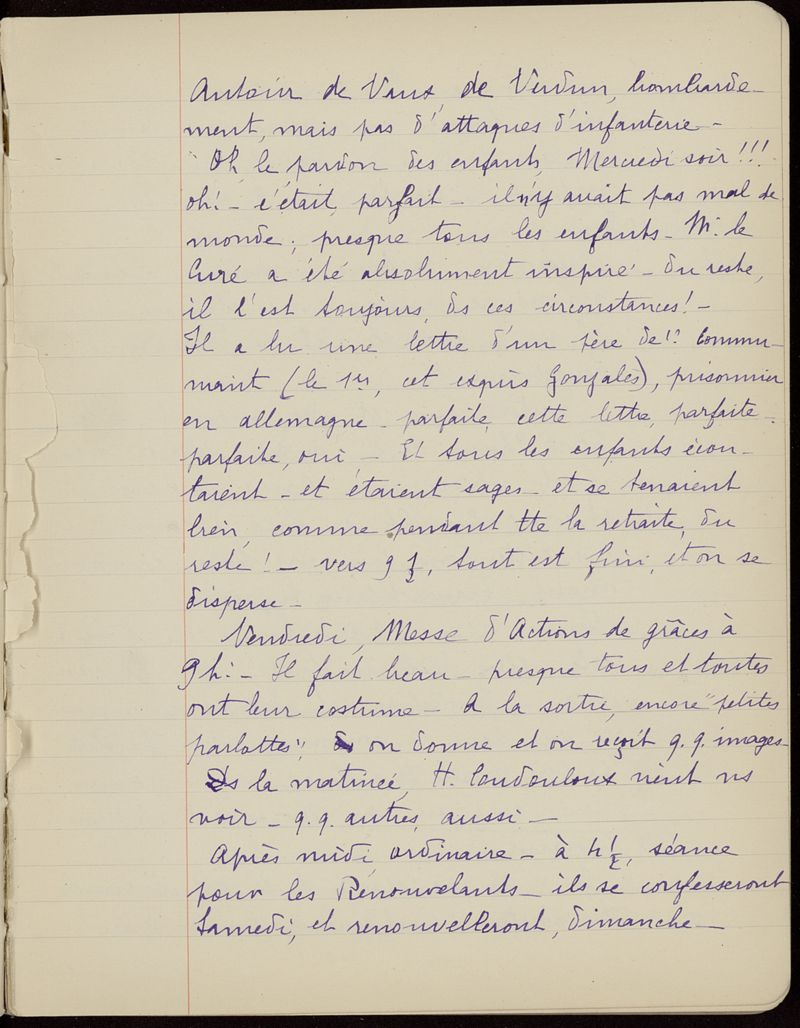 Autour de Vaux, de Verdun, bombarde-
ment, mais pas d'attaques d'infanterie -
Oh, le pardon des enfants, Mercredi soir !!!
oh! - c'était parfait - il n'y avait pas mal de
monde ; presque tous les enfants - Mr le
Curé a été absolument inspiré - du reste,
il l'est toujours, ds ces circonstances! -
Il a lu une lettre d'un père de 1er Commu-
niant (le 1er, cet exquis Gonzalès), prisonnier
en allemagne - parfaite, cette lettre, parfaite -
parfaite, oui - Et tous les enfants écou-
taient - et étaient sages - et se tenaient
bien, comme pendant tte la retraite, du
reste ! - vers 9 ½, tout est fini, et on se
disperse -
Vendredi, Messe d'Actions de grâces à
9h! - Il fait beau - presque tous et toutes
ont leur costume - A la sortie, encore "petites
parlottes", on donne et on reçoit q.q. images -
Ds la matinée, H. Coudouloux vient ns
voir - q.q. autres, aussi -
Après midi, ordinaire - à 4 ½, séance
pour les Renouvelants - ils se confesseront
Samedi, et renouvelleront, dimanche -